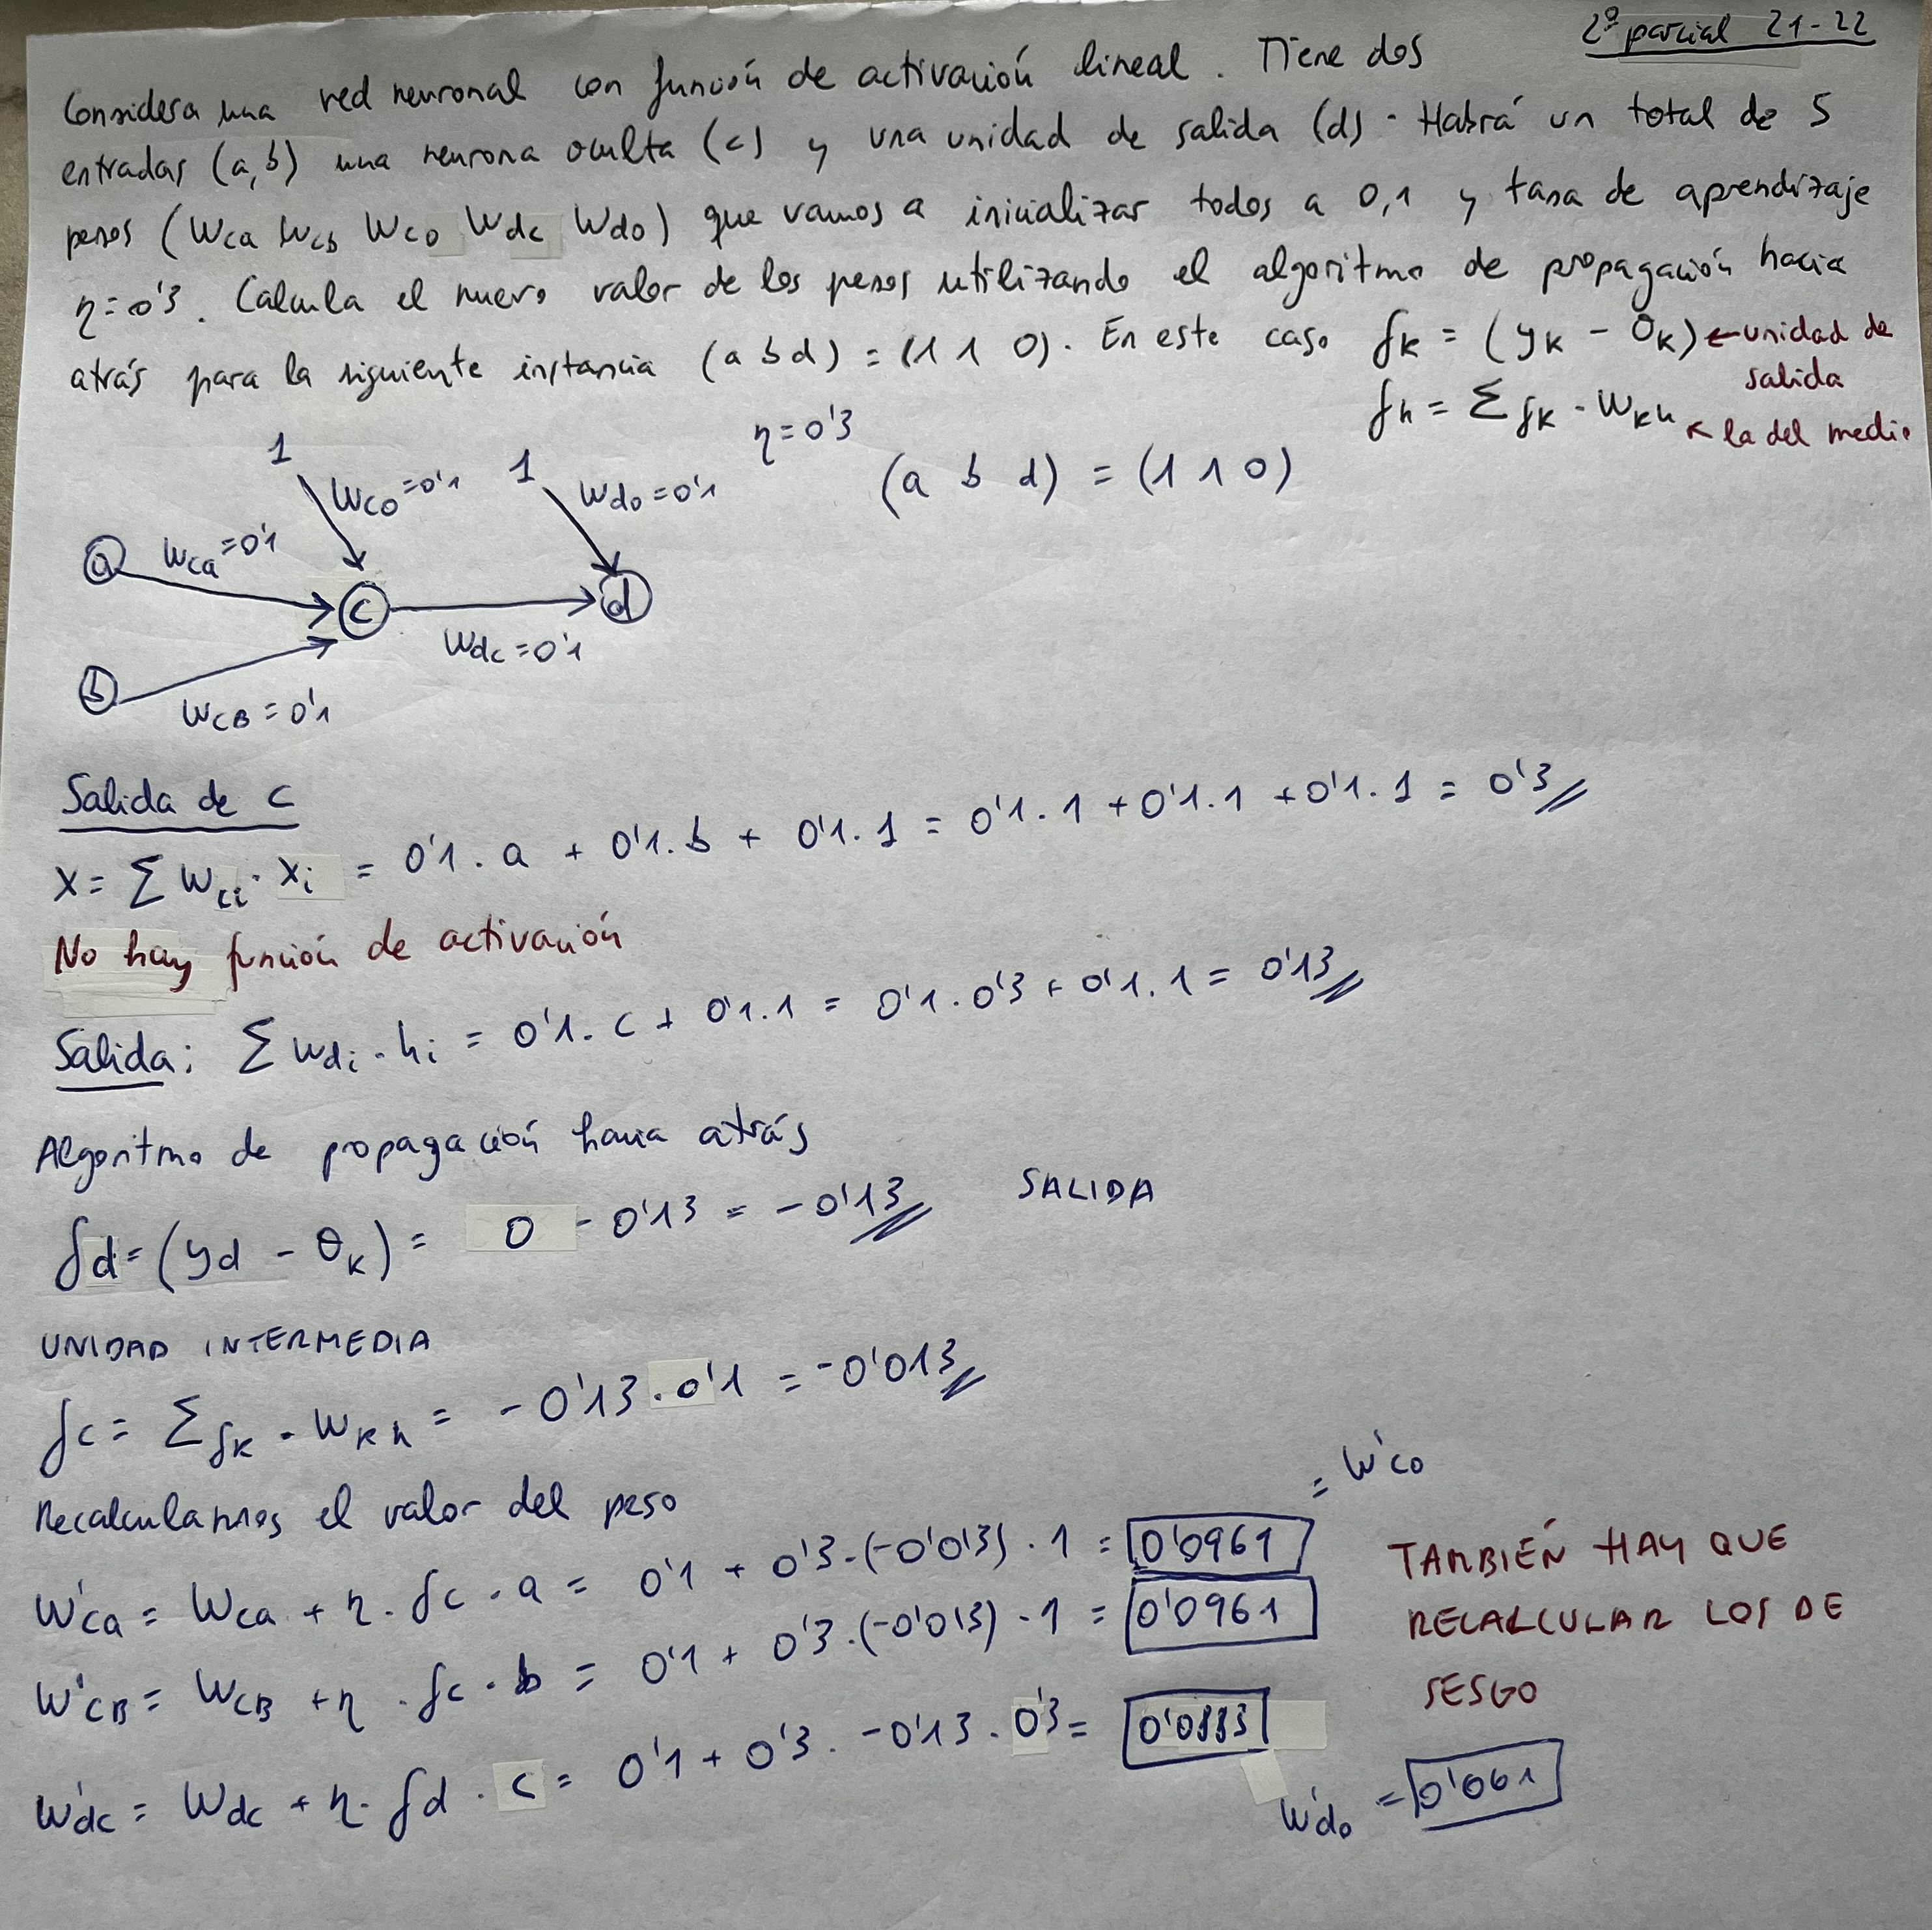 2º parcial 21-22
Considera una red neuronal con función de activación lineal. Tiene dos
entradas (a,b) una neurona oculta (c) y una unidad de salida (d). Habrá un total de 5
pesos (Wca Wcb Wco Wdc Wdo) que vamos a inicializar todos a 0,1 y tasa de aprendizaje
η=0'3. Calcula el nuevo valor de los pesos utilizando el algoritmo de propagación hacia
atrás para la siguiente instancia (a b d) = (1 1 0). En este caso δk = (yk - Ok) ← unidad de salida
δh = Σ δk · Wkh ← la del medio
η=0'3
(a b d) = (1 1 0)
1
Wco=0'1
1
Wdo=0'1
a
Wca=0'1
c
d
Wdc=0'1
b
WCB=0'1
Salida de C
X = Σ Wci · Xi = 0'1 · a + 0'1 · b + 0'1 · 1 = 0'1 · 1 + 0'1 · 1 + 0'1 · 1 = 0'3
No hay función de activación
Salida: Σ Wdi · hi = 0'1 · c + 0'1 · 1 = 0'1 · 0'3 + 0'1 · 1 = 0'13
Algoritmo de propagación hacia atrás
δd = (yd - θk) = 0 - 0'13 = -0'13 SALIDA
UNIDAD INTERMEDIA
δc = Σ δk · Wkh = -0'13 · 0'1 = -0'013
Recalculamos el valor del peso
W'ca = Wca + η · δc · a = 0'1 + 0'3 · (-0'013) · 1 = 0'0961 = W'co
W'CB = WCB + η · δc · b = 0'1 + 0'3 · (-0'013) · 1 = 0'0961
W'dc = Wdc + η · δd · c = 0'1 + 0'3 · -0'13 · 0'3 = 0'0883
TAMBIÉN HAY QUE
RECALCULAR LOS DE
SESGO
W'do = 0'061